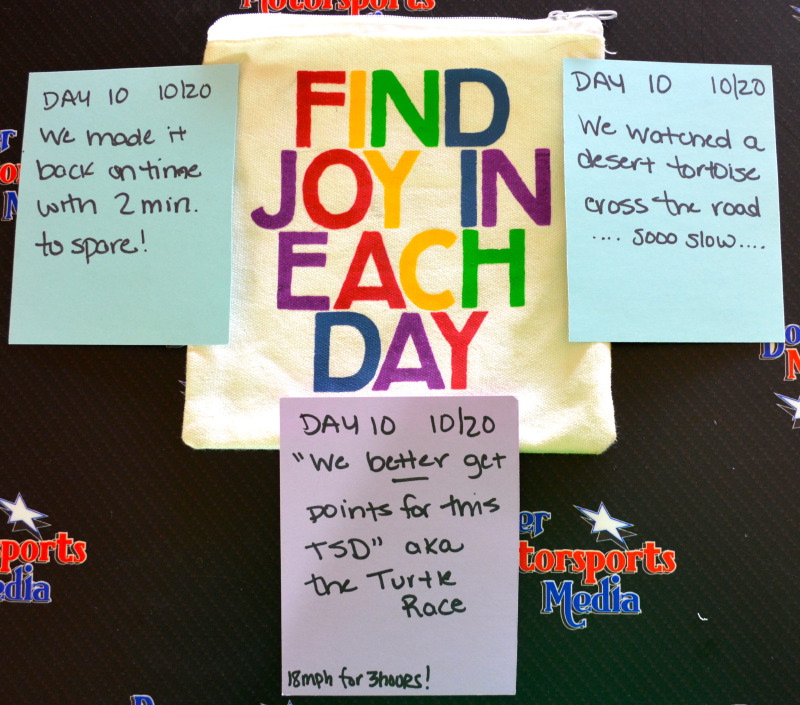 Motorsports
FIND
JOY IN
EACH
DAY
DAY 10 10/20
We made it
back on time
with 2 min.
to spare!
DAY 10 10/20
We watched a
desert tortoise
cross the road
.... sooo slow....
DAY 10 10/20
"We better get
points for this
TSD" aka
the Turtle
Race
18mph for 3hours!
er
otorsports
Media
sports
edia